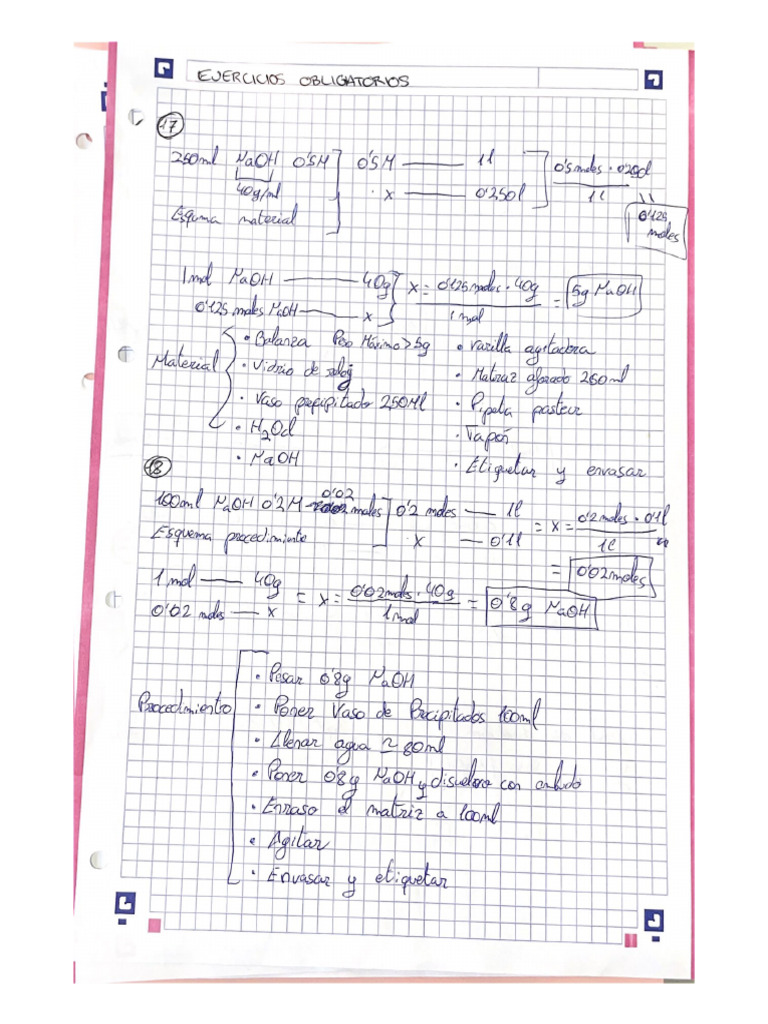 EJERCICIOS OBLIGATORIOS
17
250ml NaOH 0'5M] 0'5M —— 1l ] 0'5 moles · 0'250l
40g/ml x —— 0'250l 1l
Esquma material 0'125 moles
1 mol NaOH —— 40g x = 0'125 moles · 40g = 5g NaOH
0'125 moles NaOH — x 1 mol
Material
• Balanza Peso Máximo > 5g • Varilla agitadora
• Vidrio de reloj • Matraz aforado 250ml
• Vaso precipitado 250Ml • Pipeta pasteur
• H2Od • Tapón
• NaOH • Etiquetar y envasar
18
100ml NaOH 0'2M 0'02 moles] 0'2 moles — 1l = x = 0'2 moles · 0'1l
Esquema procedimiento x — 0'1l 1l
= 0'02 moles
1 mol —— 40g = x = 0'02 moles · 40g = 0'8g NaOH
0'02 moles — x 1 mol
Procedimiento
• Pesar 0'8g NaOH
• Poner Vaso de Precipitados 100ml
• Llenar agua ≃ 80ml
• Poner 0'8g NaOH y con
• Enraso el matriz a 100ml
• Agitar
• Envasar y etiquetar